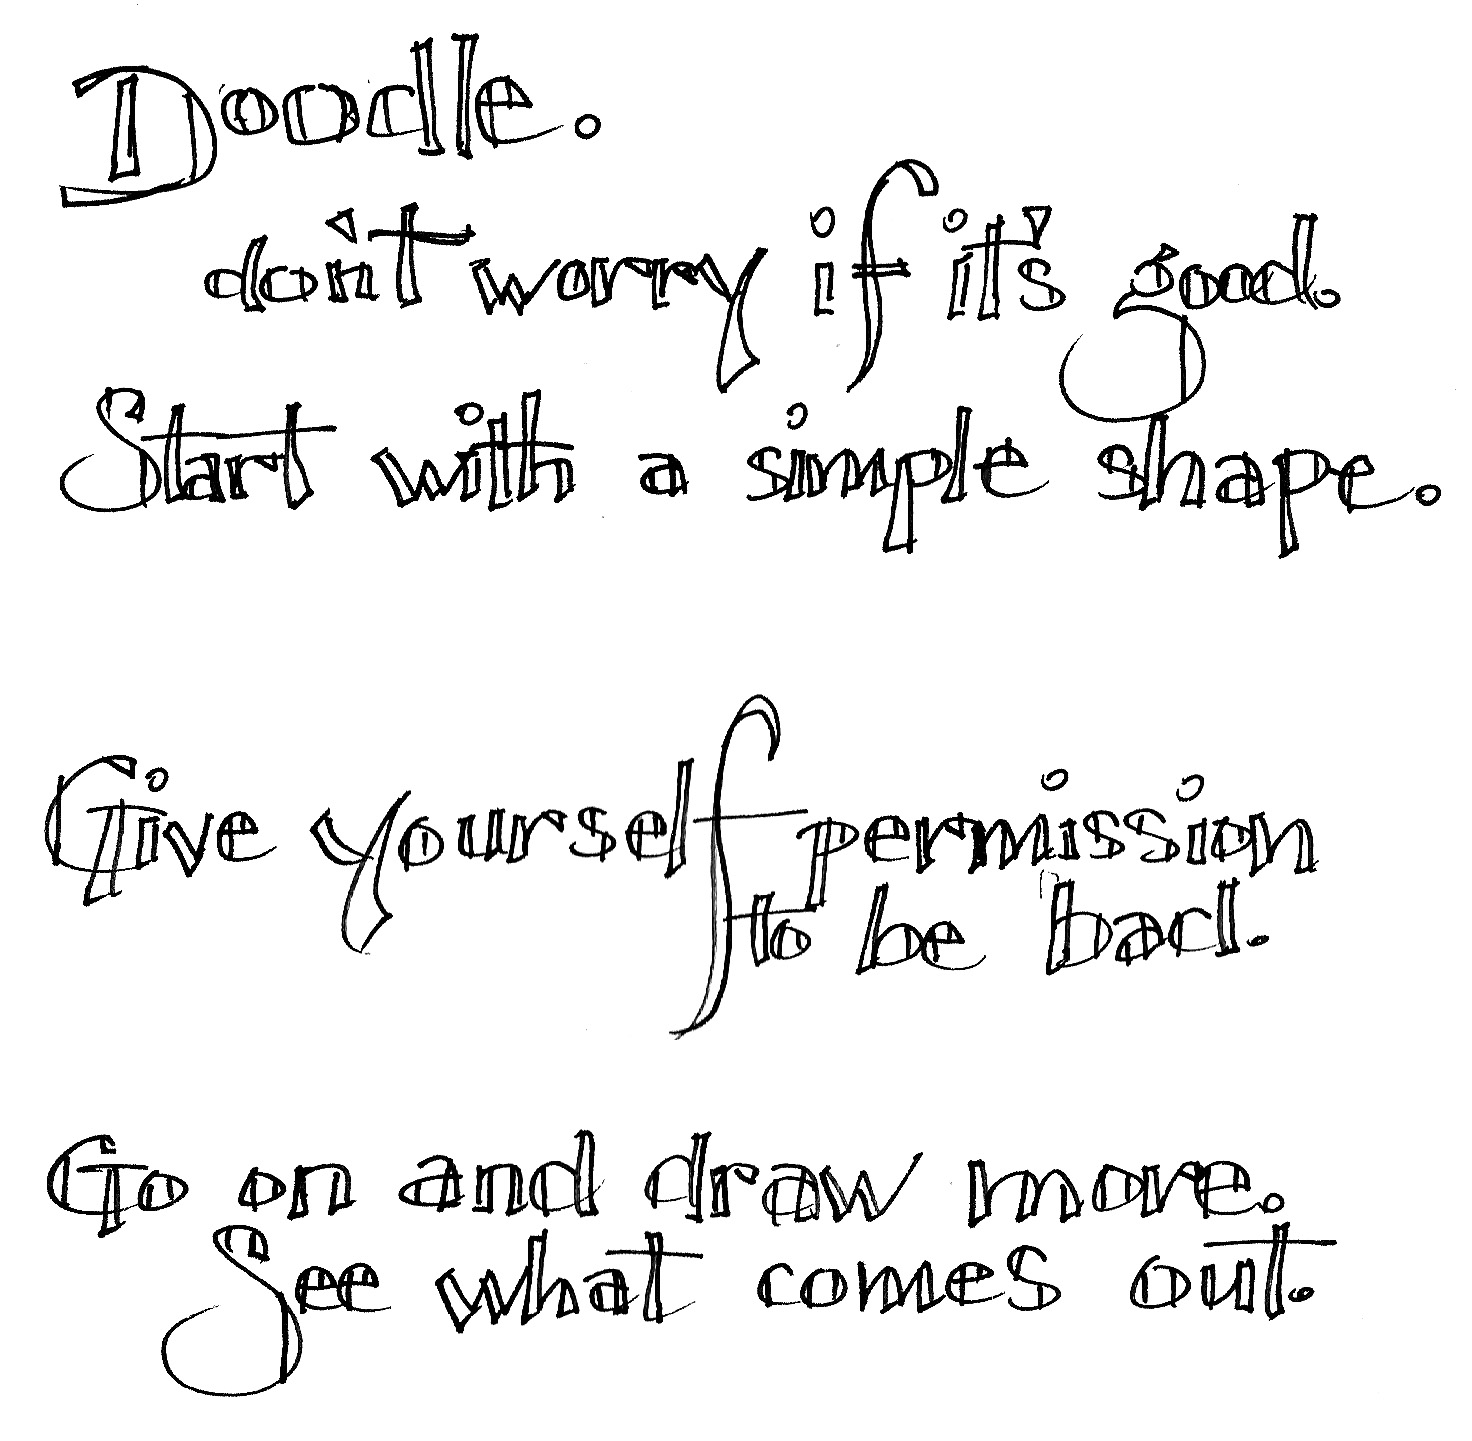 Doodle.
don't worry if it's good.
Start with a simple shape.
Give yourself permission
to be bad.
Go on and draw more.
See what comes out.